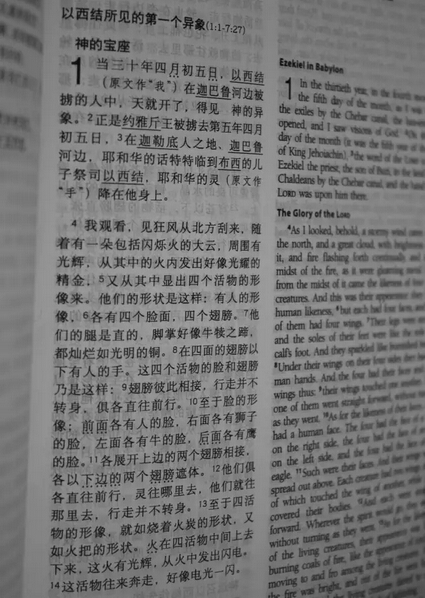 以西结所见的第一个异象(1:1-7:27)
神的宝座
1 当三十年四月初五日，以西结
（原文作“我”）在迦巴鲁河边被
掳的人中，天就开了，得见 神的异
象。2正是约雅斤王被掳去第五年四月
初五日，3在迦勒底人之地、迦巴鲁
河边，耶和华的话特特临到布西的儿
子祭司以西结，耶和华的灵（原文作
“手”）降在他身上。
4 我观看，见狂风从北方刮来，随
着有一朵包括闪烁火的大云，周围有
光辉，从其中的火内发出好像光耀的
精金，5又从其中显出四个活物的形
像来。他们的形状是这样：有人的形
像，6各有四个脸面，四个翅膀。7他
们的腿是直的，脚掌好像牛犊之蹄，
都灿烂如光明的铜。8在四面的翅膀以
下有人的手。这四个活物的脸和翅膀
乃是这样：9翅膀彼此相接，行走并不
转身，俱各直往前行。10至于脸的形
像：前面各有人的脸，右面各有狮子
的脸，左面各有牛的脸，后面各有鹰
的脸。11各展开上边的两个翅膀相接，
各以下边的两个翅膀遮体。12他们俱
各直往前行，灵往哪里去，他们就往
那里去，行走并不转身。13至于四活
物的形像，就如烧着火炭的形状，又
如火把的形状。火在四活物中间上去
下来，这火有光辉，从火中发出闪电。
14这活物往来奔走，好像电光一闪。
Ezekiel in Babylon
1 In the thirtieth year, in the fourth
the fifth day of the month, as I was
the exiles by the Chebar canal, the
opened, and I saw visions of God. 2On
day of the month (it was the fifth
of King Jehoiachin), 3the word of the
Ezekiel the priest, the son of Buzi, in the
Chaldeans by the Chebar canal, and the
LORD was upon him there.
The Glory of the LORD
4As I looked, behold, a stormy wind came
the north, and a great cloud, with brightness
it, and fire flashing forth continually, and
midst of the fire, as it were gleaming metal.
from the midst of it came the likeness of
creatures. And this was their appearance:
human likeness, 6but each had four faces, and
of them had four wings. 7Their legs were
and the soles of their feet were like the
calf's foot. And they sparkled like burnished
8Under their wings on their four sides
man hands. And the four had their faces
wings thus: 9their wings touched one
one of them went straight forward, without
as they went. 10As for the likeness of their
had a human face. The four had the face of
on the right side, the four had the face of
on the left side, and the four had the
eagle. 11Such were their faces. And their
spread out above. Each creature had two
of which touched the wing of another, while
covered their bodies. 12And each went
forward. Wherever the spirit
without turning as they went. 13As for the
of the living creatures, their appearance
burning coals of fire, like the appearance
moving to and fro among the living creatures
the fire was bright, and out of the